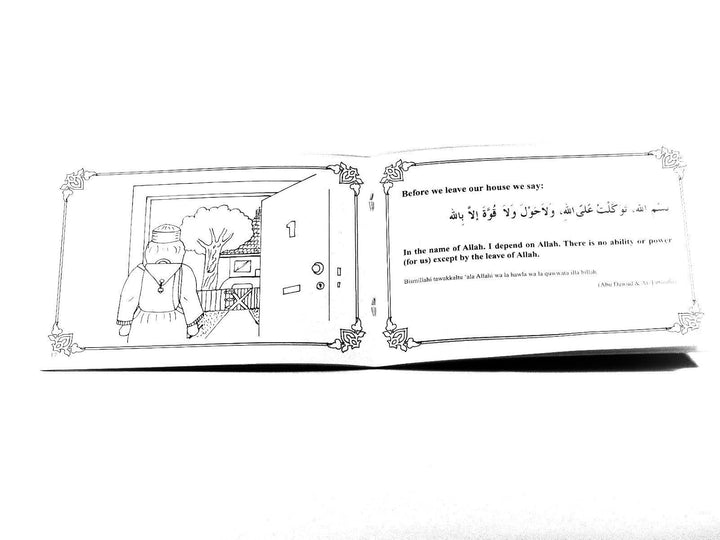 1
Before we leave our house we say:
بِسْمِ اللهِ، تَوَكَّلْتُ عَلَى اللهِ، وَلاَحَوْلَ وَلاَ قُوَّةَ إِلاَّ بِاللهِ
In the name of Allah. I depend on Allah. There is no ability or power
(for us) except by the leave of Allah.
Bismillahi tawakkaltu 'ala Allahi wa la hawla wa la quwwata illa billah.
(Abu Dawud & At-Tirmidhi)